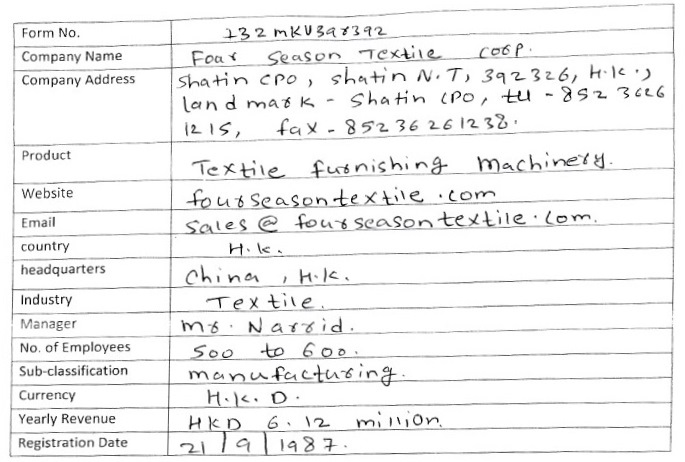 Form No. 132mKU398392
Company Name Four Season Textile corp.
Company Address Shatin CPO, Shatin N.T, 392326, H.k.,
land mark - Shatin CPO, tel - 852 3626
1215, fax - 852 36 26 1238.
Product Textile furnishing machinery.
Website fourseasontextile.com
Email sales@fourseasontextile.com.
country H.k.
headquarters China, H.k.
Industry Textile.
Manager mr. Narrid.
No. of Employees 500 to 600.
Sub-classification manufacturing.
Currency H.k.D.
Yearly Revenue HKD 6.12 million.
Registration Date 21/9/1987.